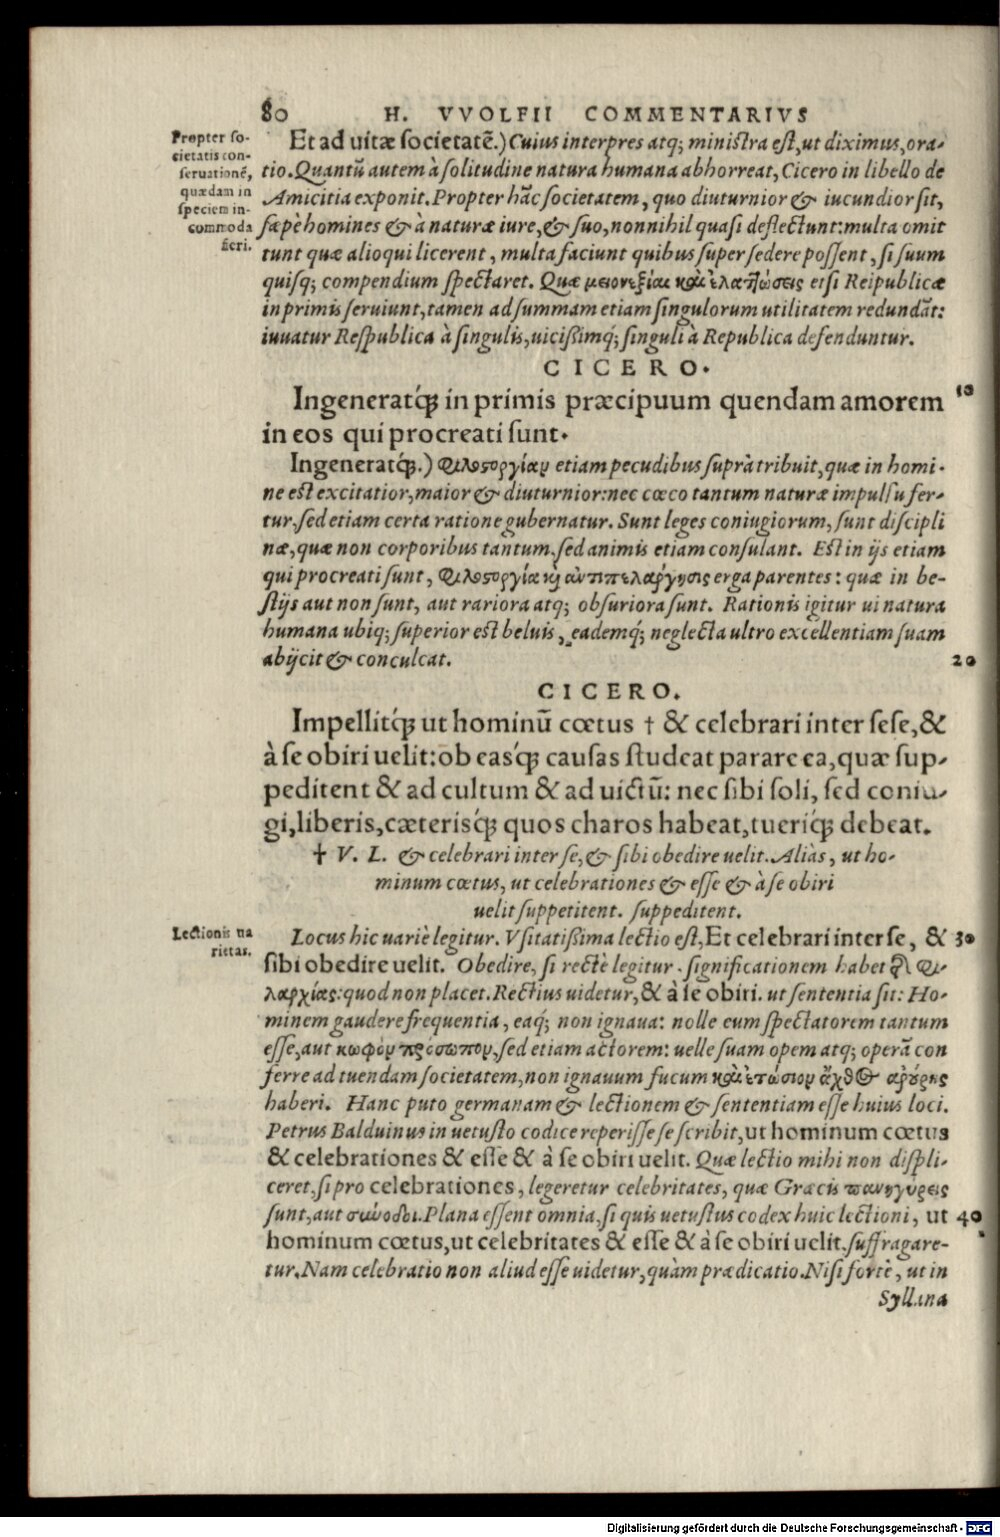 80 H. VVOLFII COMMENTARIVS
Propter so-
cietatis con-
seruationẽ,
quædam in
speciem in-
commoda
fieri.
Et ad uitæ societatẽ.) Cuius interpres atq; ministra est, ut diximus, ora-
tio. Quantũ autem à solitudine natura humana abhorreat, Cicero in libello de
Amicitia exponit. Propter hãc societatem, quo diuturnior & iucundior sit,
sæpè homines & à naturæ iure, & suo, nonnihil quasi deflectunt: multa omit
tunt quæ alioqui licerent, multa faciunt quibus supersedere possent, si suum
quisq; compendium spectaret. Quæ μειονεξίαι καὶ ἐλαττώσεις etsi Reipublicæ
inprimis seruiunt, tamen ad summam etiam singulorum utilitatem redundãt:
iuuatur Respublica à singulis, uicißimq́; singuli à Republica defenduntur.
CICERO.
Ingeneratq́; in primis præcipuum quendam amorem 10
in eos qui procreati sunt.
Ingeneratq́;.) Φιλοστοργίαν etiam pecudibus suprà tribuit, quæ in homi-
ne est excitatior, maior & diuturnior: nec cœco tantum naturæ impulsu fer-
tur, sed etiam certa ratione gubernatur. Sunt leges coniugiorum, sunt discipli
næ, quæ non corporibus tantum, sed animis etiam consulant. Est in ijs etiam
qui procreati sunt, Φιλοστοργία κὶ ἀντιπελάργησις erga parentes: quæ in be-
stijs aut non sunt, aut rariora atq; obsuriora sunt. Rationis igitur ui natura
humana ubiq; superior est beluis, eademq́; neglecta ultro excellentiam suam
abijcit & conculcat. 20
CICERO.
Impellitq́; ut hominũ cœtus † & celebrari inter sese, &
à se obiri uelit: ob easq́; causas studeat parare ea, quæ sup-
peditent & ad cultum & ad uictũ: nec sibi soli, sed coniu-
gi, liberis, cæterisq́; quos charos habeat, tueriq́; debeat.
† V. L. & celebrari inter se, & sibi obedire uelit. Aliàs, ut ho-
minum cœtus, ut celebrationes & esse & à se obiri
uelit suppetitent. suppeditent.
Lectionis ua
rietas.
Locus hic uariè legitur. Vsitatißima lectio est, Et celebrari inter se, & 30
sibi obedire uelit. Obedire, si rectè legitur. significationem habet τῆς φι-
λαρχίας: quod non placet. Rectius uidetur, & à se obiri. ut sententia sit: Ho-
minem gaudere frequentia, eaq́; non ignaua: nolle eum spectatorem tantum
esse, aut κωφὸν πρόσωπον, sed etiam actorem: uelle suam opem atq; operã con
ferre ad tuendam societatem, non ignauum fucum καὶ ἐτώσιον ἄχθος ἀρούρης
haberi. Hanc puto germanam & lectionem & sententiam esse huius loci.
Petrus Balduinus in uetusto codice reperisse se scribit, ut hominum cœtus
& celebrationes & esse & à se obiri uelit. Quæ lectio mihi non displi-
ceret, si pro celebrationes, legeretur celebritates, quæ Græcis πανηγύρεις
sunt, aut σύνοδοι. Plana essent omnia, si quis uetustus codex huic lectioni, ut 40
hominum cœtus, ut celebritates & esse & à se obiri uelit, suffragare-
tur. Nam celebratio non aliud esse uidetur, quàm prædicatio. Nisi fortè, ut in
Syllana
Digitalisierung gefördert durch die Deutsche Forschungsgemeinschaft - DFG